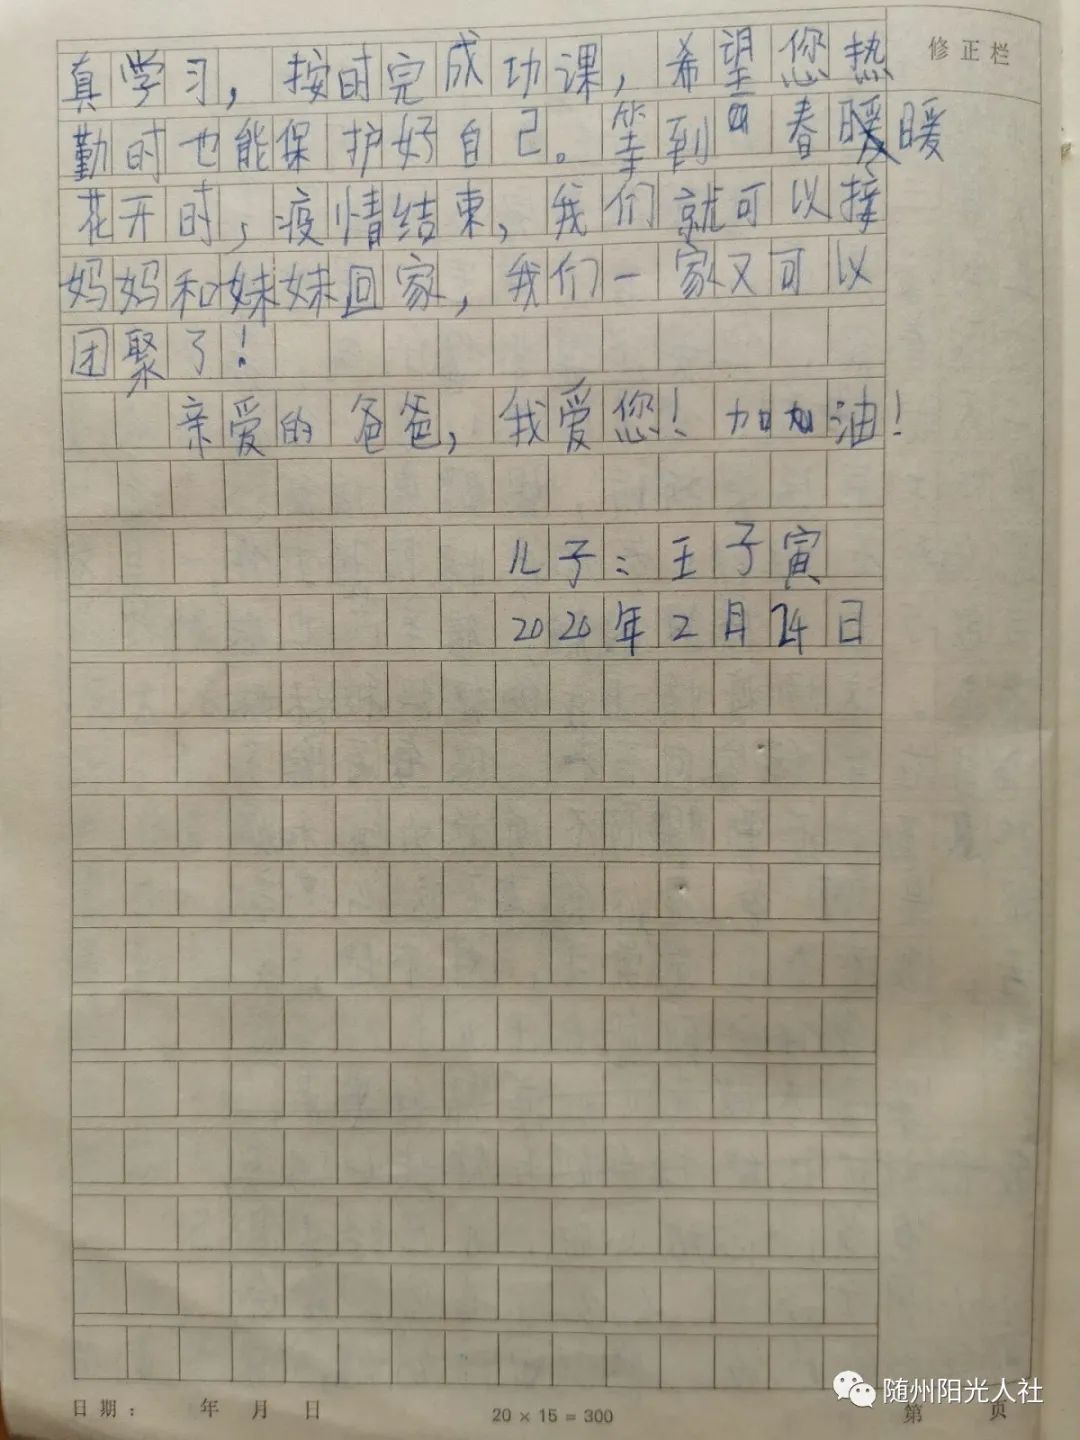 修正栏
真学习，按时完成功课，希望您热
勤时也能保护好自己。等到春暖
花开时，疫情结束，我们就可以接
妈妈和妹妹回家，我们一家又可以
团聚了！
亲爱的爸爸，我爱您！加加油！
儿子：王子寅
2020年2月24日
随州阳光人社
日期： 年 月 日 20×15=300 第 页